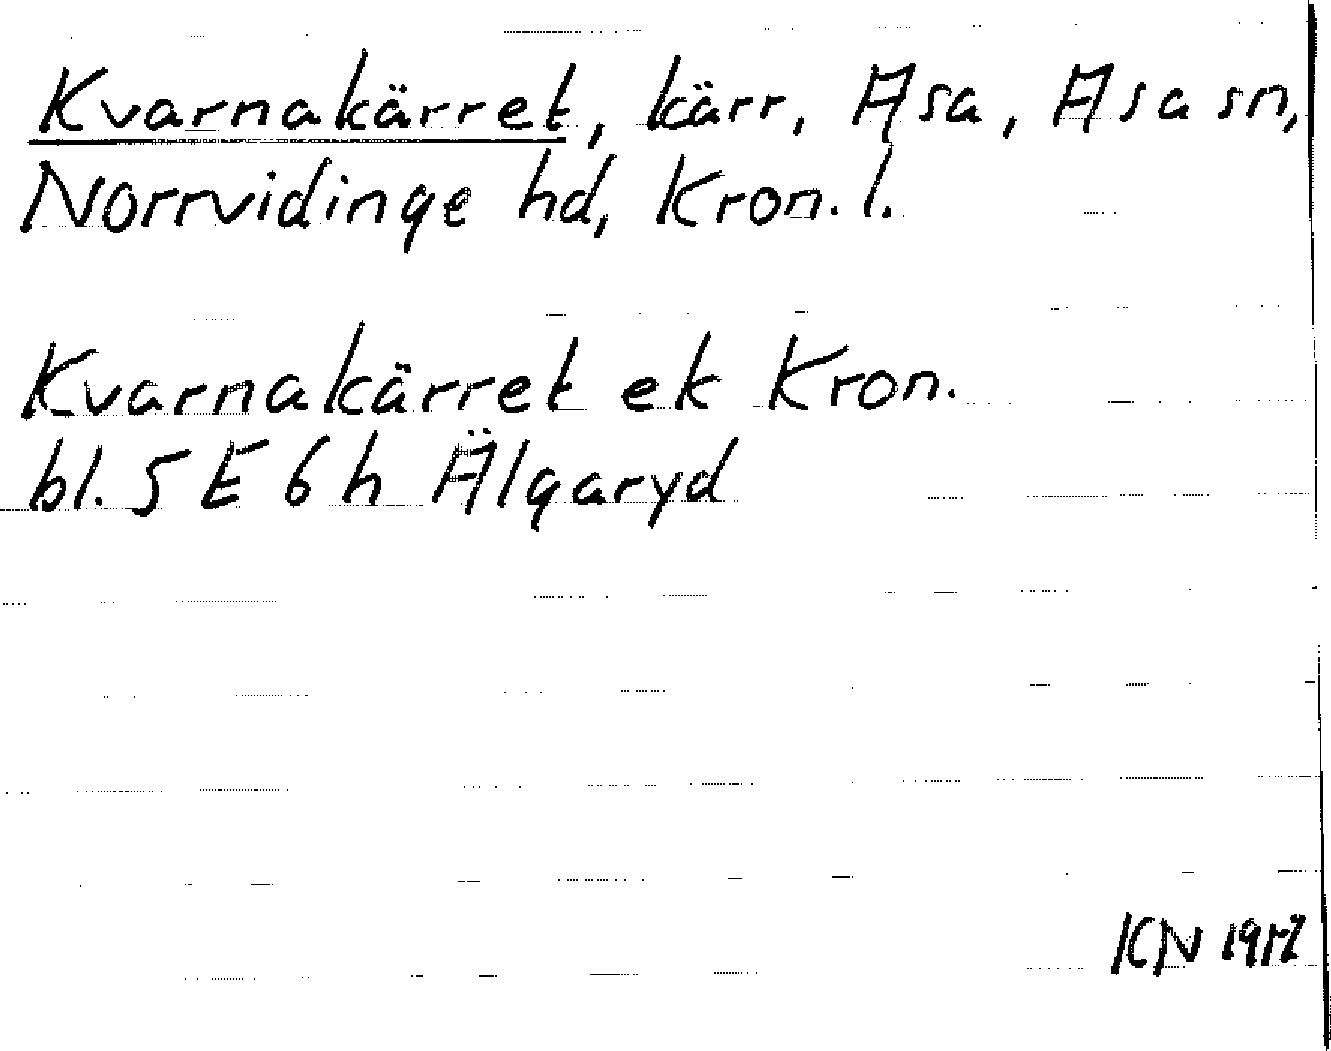 Kvarnakärret, kärr, Asa, Asa sn,
Norrvidinge hd, Kron. l.
Kvarnakärret ek Kron.
bl. 5 E 6 h Älgaryd
KN